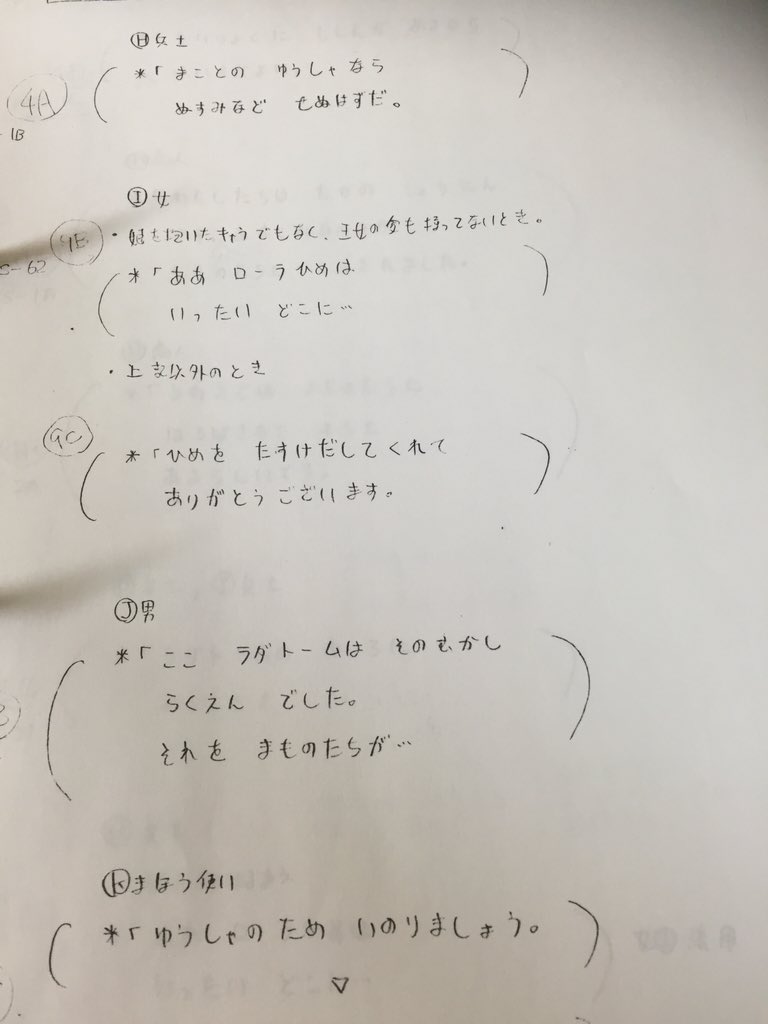 Ⓗ女士
*「まことの ゆうしゃなら
ぬすみなど せぬはずだ。
4A
1B
Ⓘ女
・姫を抱いたキャラでもなく、王女の
9B
S-62
*「ああ ローラひめは
いったい どこに…
・上記以外のとき
9C
*「ひめを たすけだしてくれて
ありがとうございます。
Ⓙ男
*「ここ ラダトームは そのむかし
らくえん でした。
それを まものたちが…
Ⓚまほう使い
*「ゆうしゃのため いのりましょう。
▽